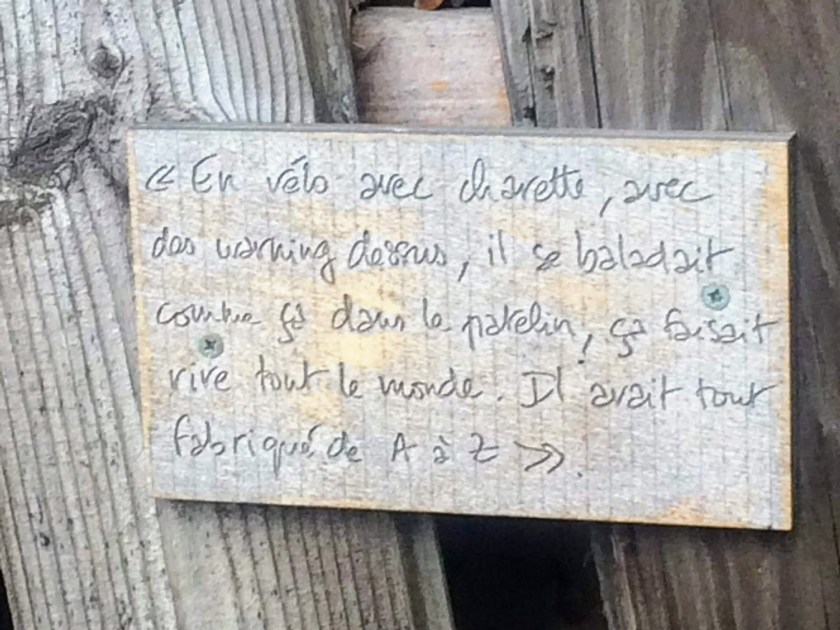 « En vélo avec charette, avec
des warning dessus, il se baladait
comme ça dans le patelin, ça faisait
rire tout le monde. Il avait tout
fabriqué de A à Z ».